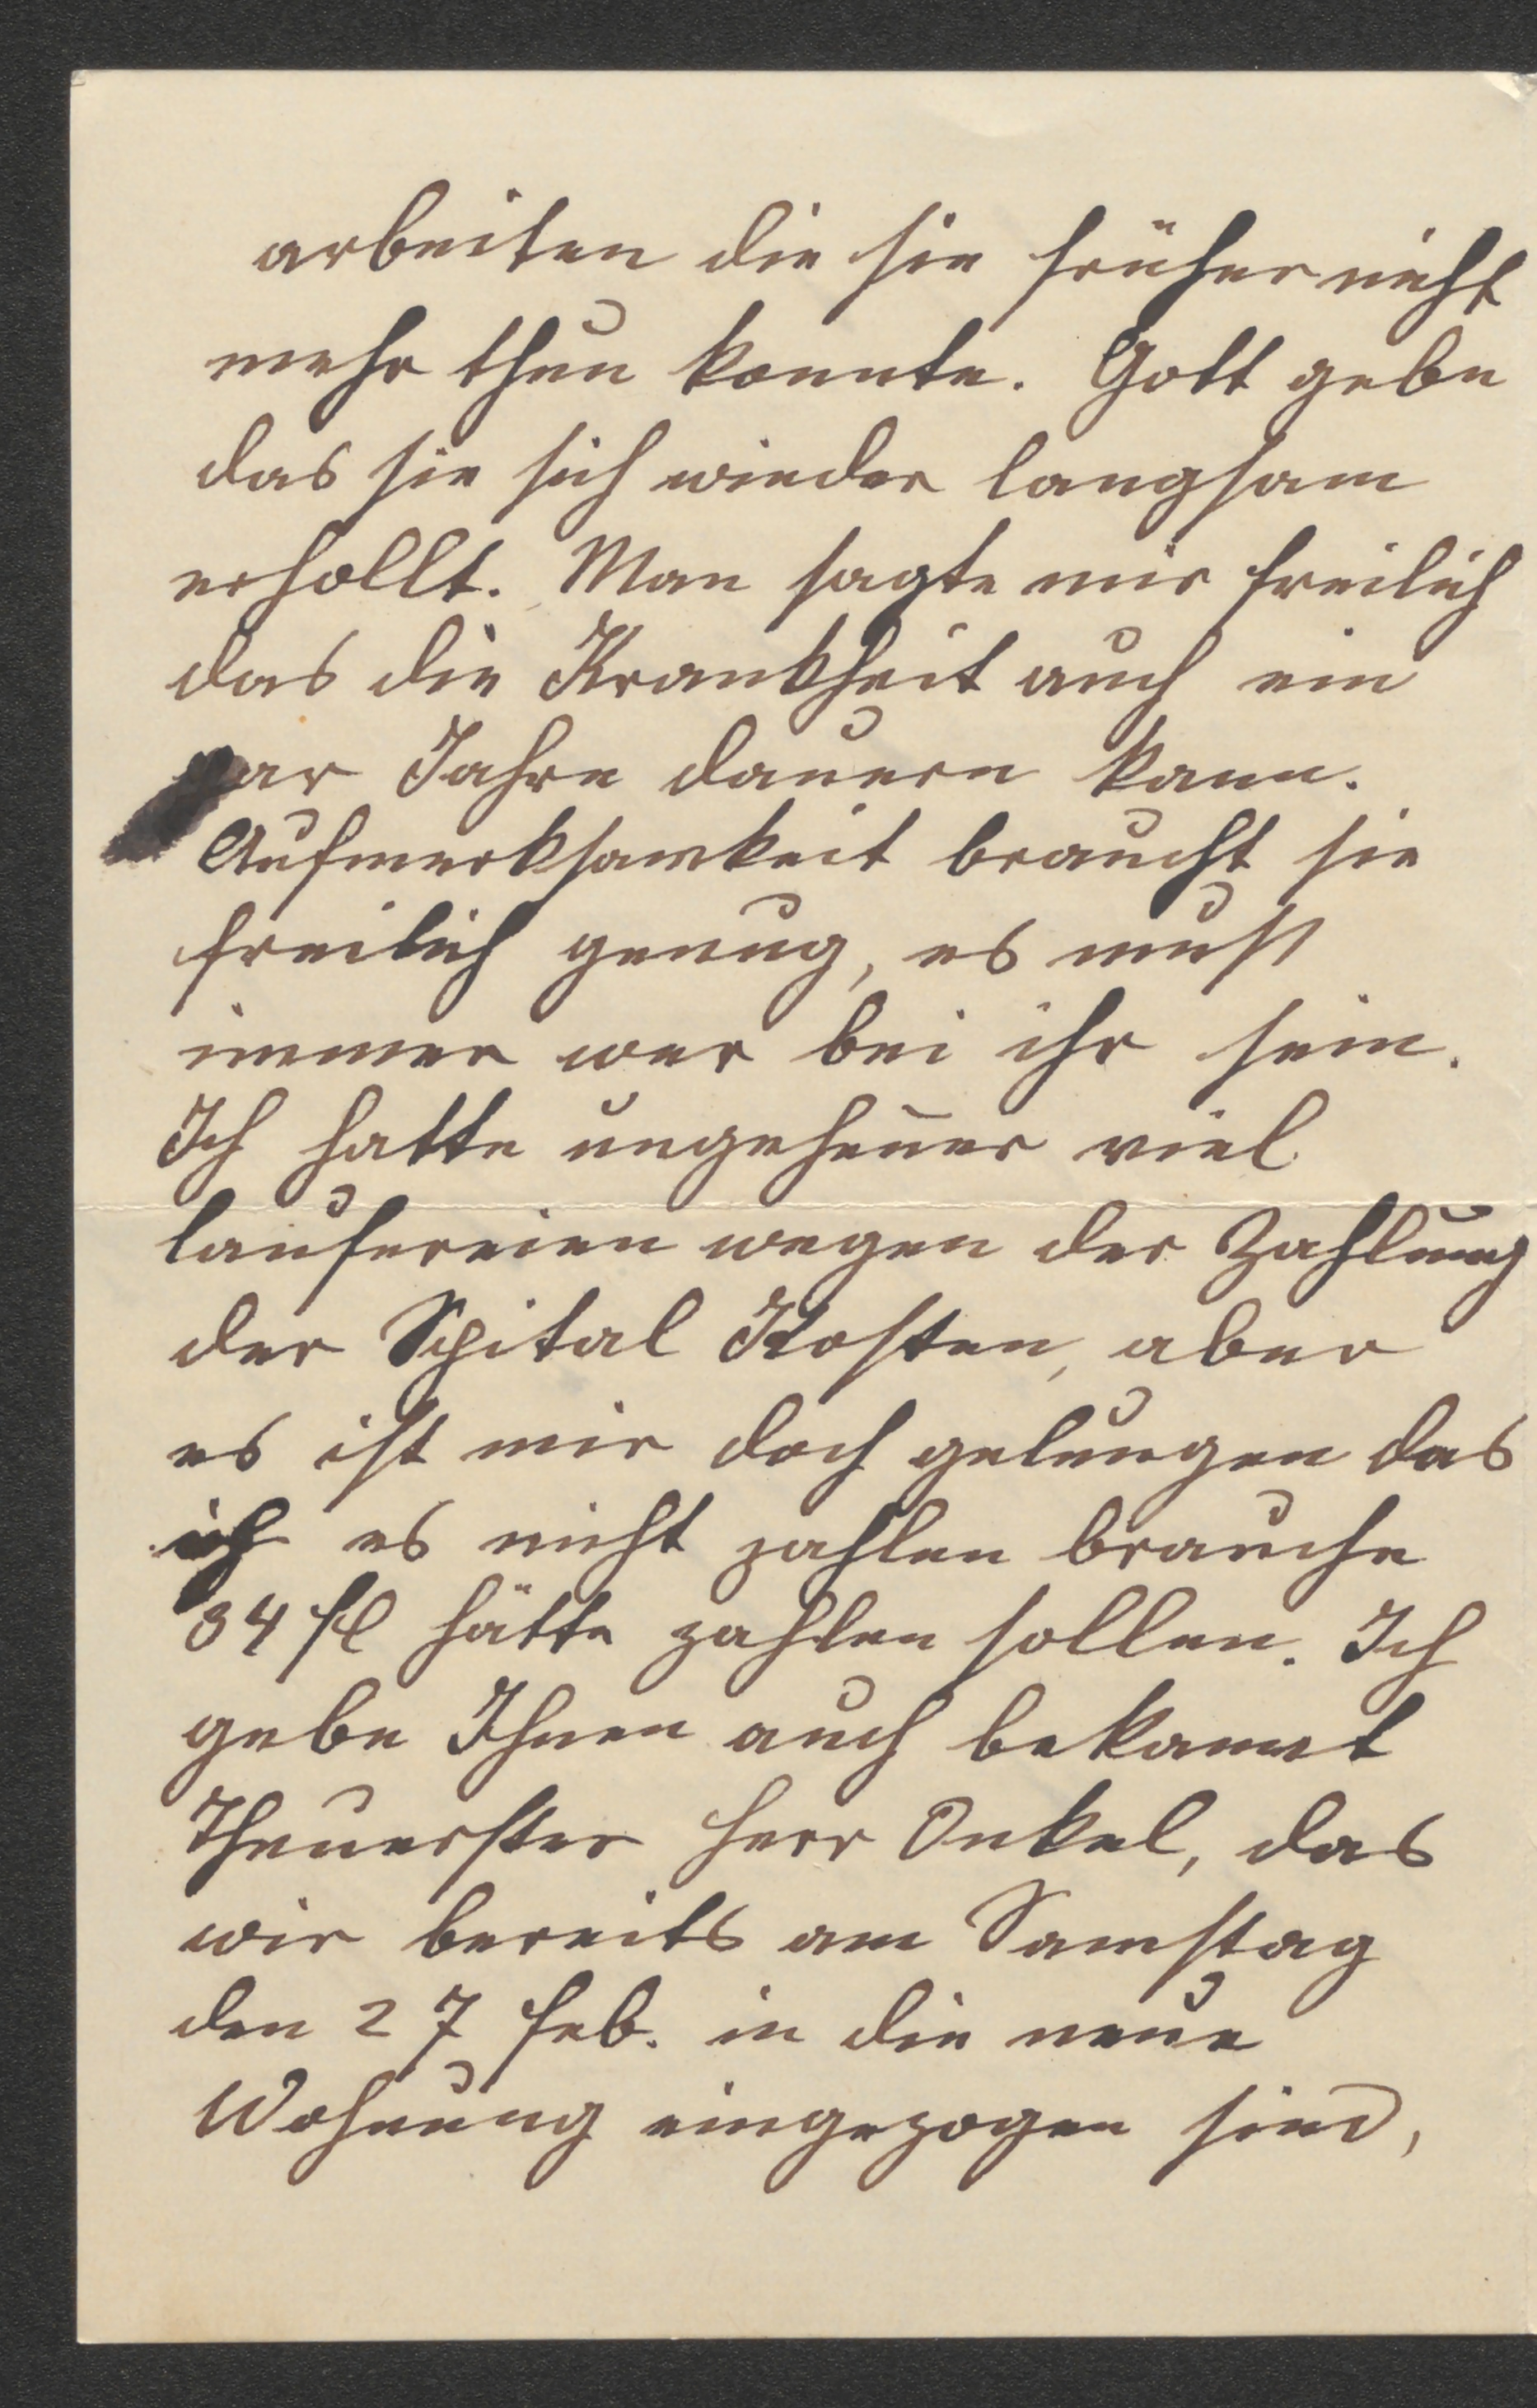 arbeiten die sie früher nicht
mehr thun konnte. Gott gebe
das sie sich wieder langsam
erhollt. Man sagte mir freilich
das die Krankheit auch ein
par Jahre dauern kann.
Aufmerksamkeit braucht sie
freilich genug, es muß
immer wer bei ihr sein.
Ich hatte ungeheuer viel
laufereien wegen der Zahlung
der Spital Kosten, aber
es ist mir doch gelungen das
ich es nicht zahlen brauche
34 fl hätte zahlen sollen. Ich
gebe Ihnen auch bekannt
Theuerster Herr Onkel, das
wir bereits am Samstag
den 27 Feb. in die neue
Wohnung eingezogen sind,